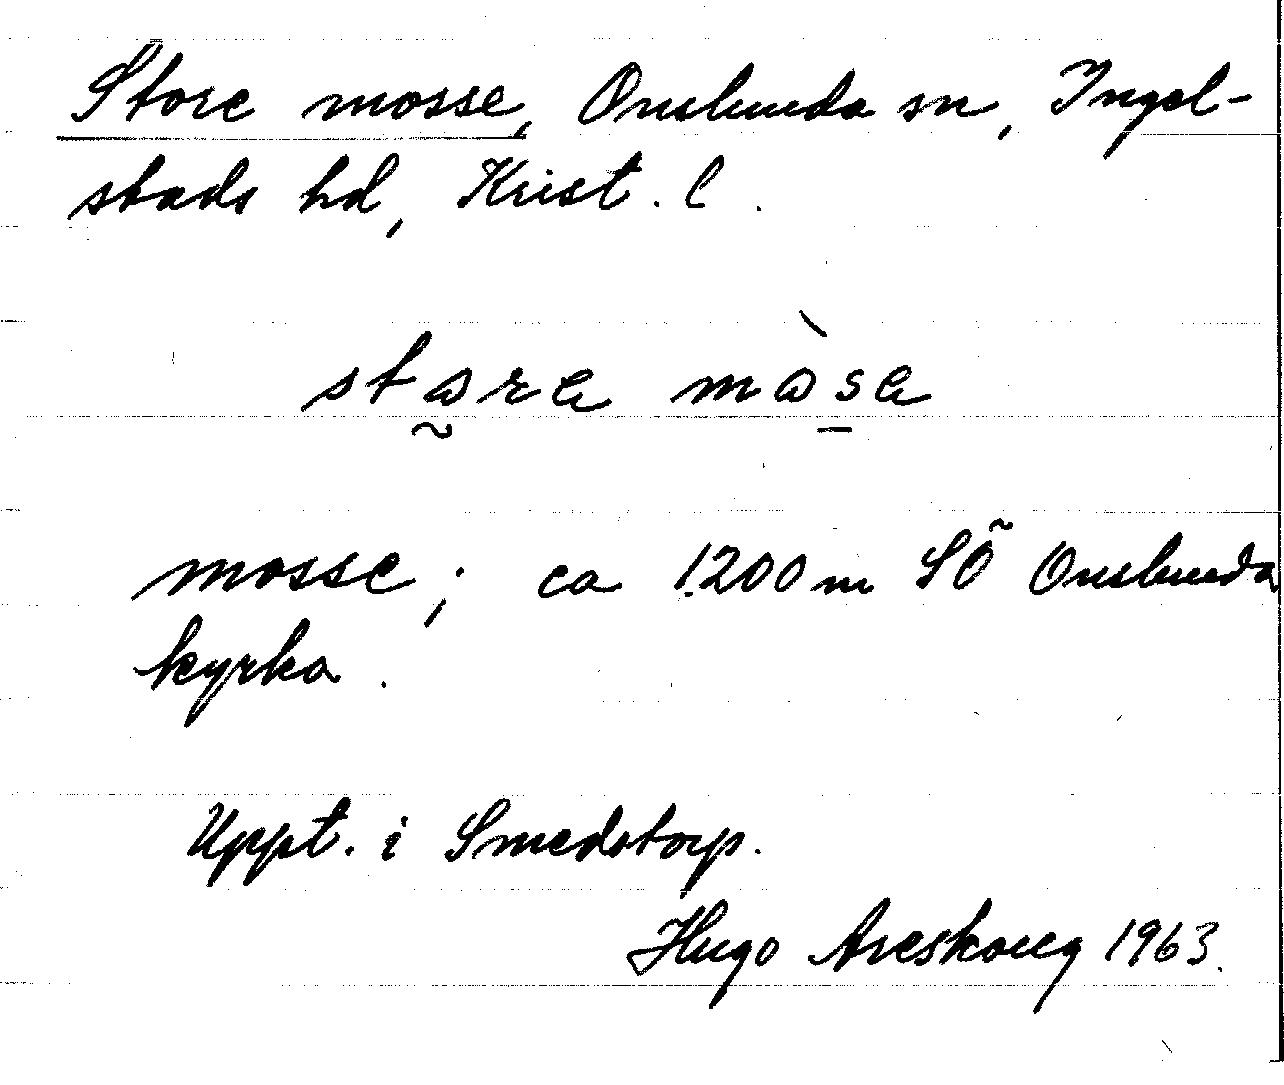 Store mosse, Onslunda sn, Ingel-
stads hd, Krist. l.
mosse; ca 1200 m SÖ Onslunda
kyrka.
Uppt. i Smedstorp.
Hugo Areskoug 1963.